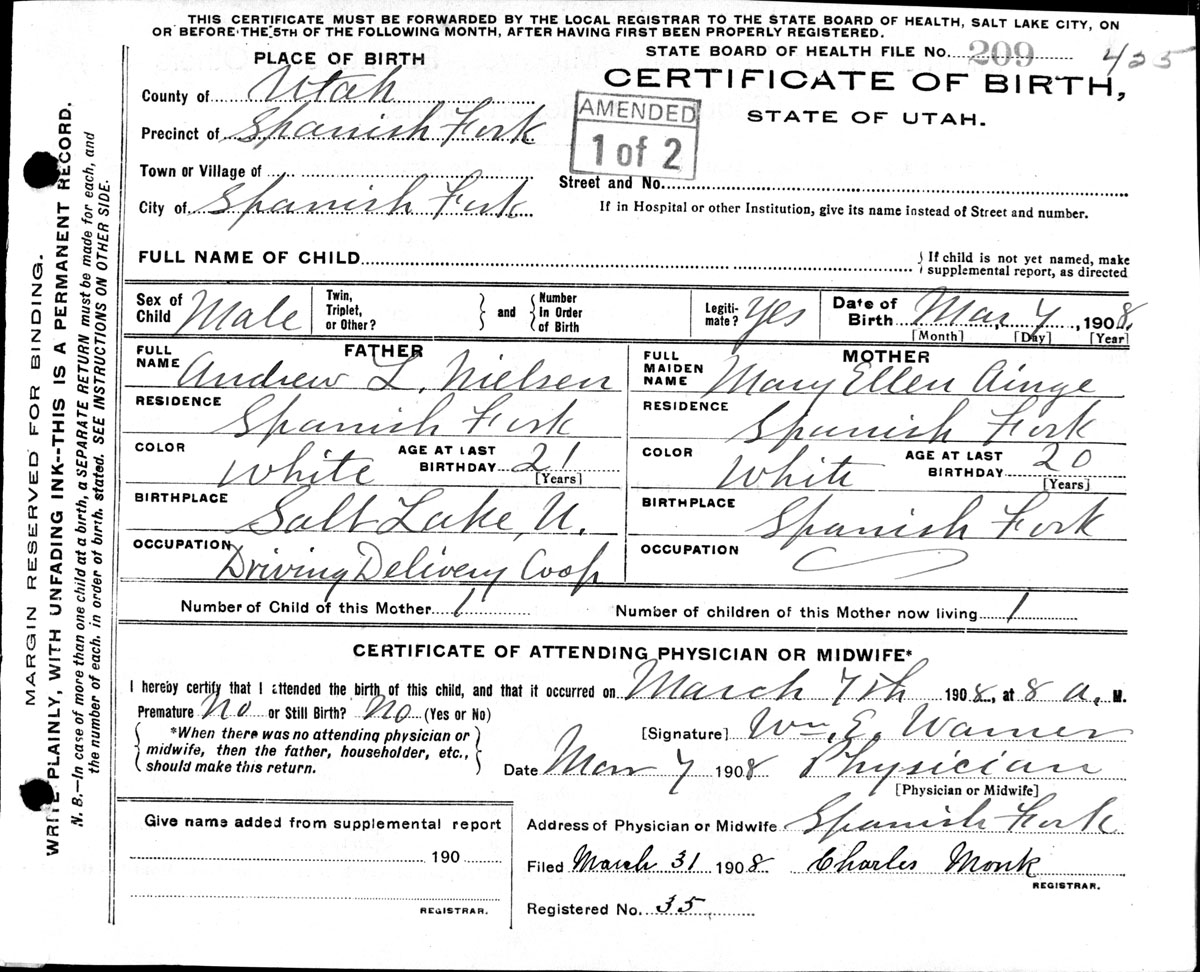 THIS CERTIFICATE MUST BE FORWARDED BY THE LOCAL REGISTRAR TO THE STATE BOARD OF HEALTH, SALT LAKE CITY, ON
OR BEFORE THE 5TH OF THE FOLLOWING MONTH, AFTER HAVING FIRST BEEN PROPERLY REGISTERED.
PLACE OF BIRTH
STATE BOARD OF HEALTH FILE No. 209 425
County of Utah
CERTIFICATE OF BIRTH,
STATE OF UTAH.
AMENDED
1 of 2
Precinct of Spanish Fork
Town or Village of
Street and No.
City of Spanish Fork
If in Hospital or other Institution, give its name instead of Street and number.
FULL NAME OF CHILD
If child is not yet named, make
supplemental report, as directed
Sex of
Child Male
Twin,
Triplet,
or Other?
and
Number
In Order
of Birth
Legiti-
mate? Yes
Date of
Birth Mar, 7, 1908.
[Month] [Day] [Year]
FATHER
FULL
NAME Andrew L. Nielsen
RESIDENCE
Spanish Fork
COLOR
White
AGE AT LAST
BIRTHDAY 21
[Years]
BIRTHPLACE
Salt Lake, U.
OCCUPATION
Driving Delivery Coop
MOTHER
FULL
MAIDEN
NAME Mary Ellen Ainge
RESIDENCE
Spanish Fork
COLOR
White
AGE AT LAST
BIRTHDAY 20
[Years]
BIRTHPLACE
Spanish Fork
OCCUPATION
Number of Child of this Mother 1
Number of children of this Mother now living 1
CERTIFICATE OF ATTENDING PHYSICIAN OR MIDWIFE*
I hereby certify that I attended the birth of this child, and that it occurred on March 7th 1908, at 8 a. M.
Premature No or Still Birth? No (Yes or No)
*When there was no attending physician or
midwife, then the father, householder, etc.,
should make this return.
[Signature] Wm. E. Warner
Date Mar 7 1908 Physician
[Physician or Midwife]
Give name added from supplemental report
190
REGISTRAR.
Address of Physician or Midwife Spanish Fork
Filed March 31 1908 Charles Monk
REGISTRAR.
Registered No. 35
MARGIN RESERVED FOR BINDING.
WRITE PLAINLY, WITH UNFADING INK--THIS IS A PERMANENT RECORD.
N. B.—In case of more than one child at a birth, a SEPARATE RETURN must be made for each, and
the number of each, in order of birth, stated. SEE INSTRUCTIONS ON OTHER SIDE.